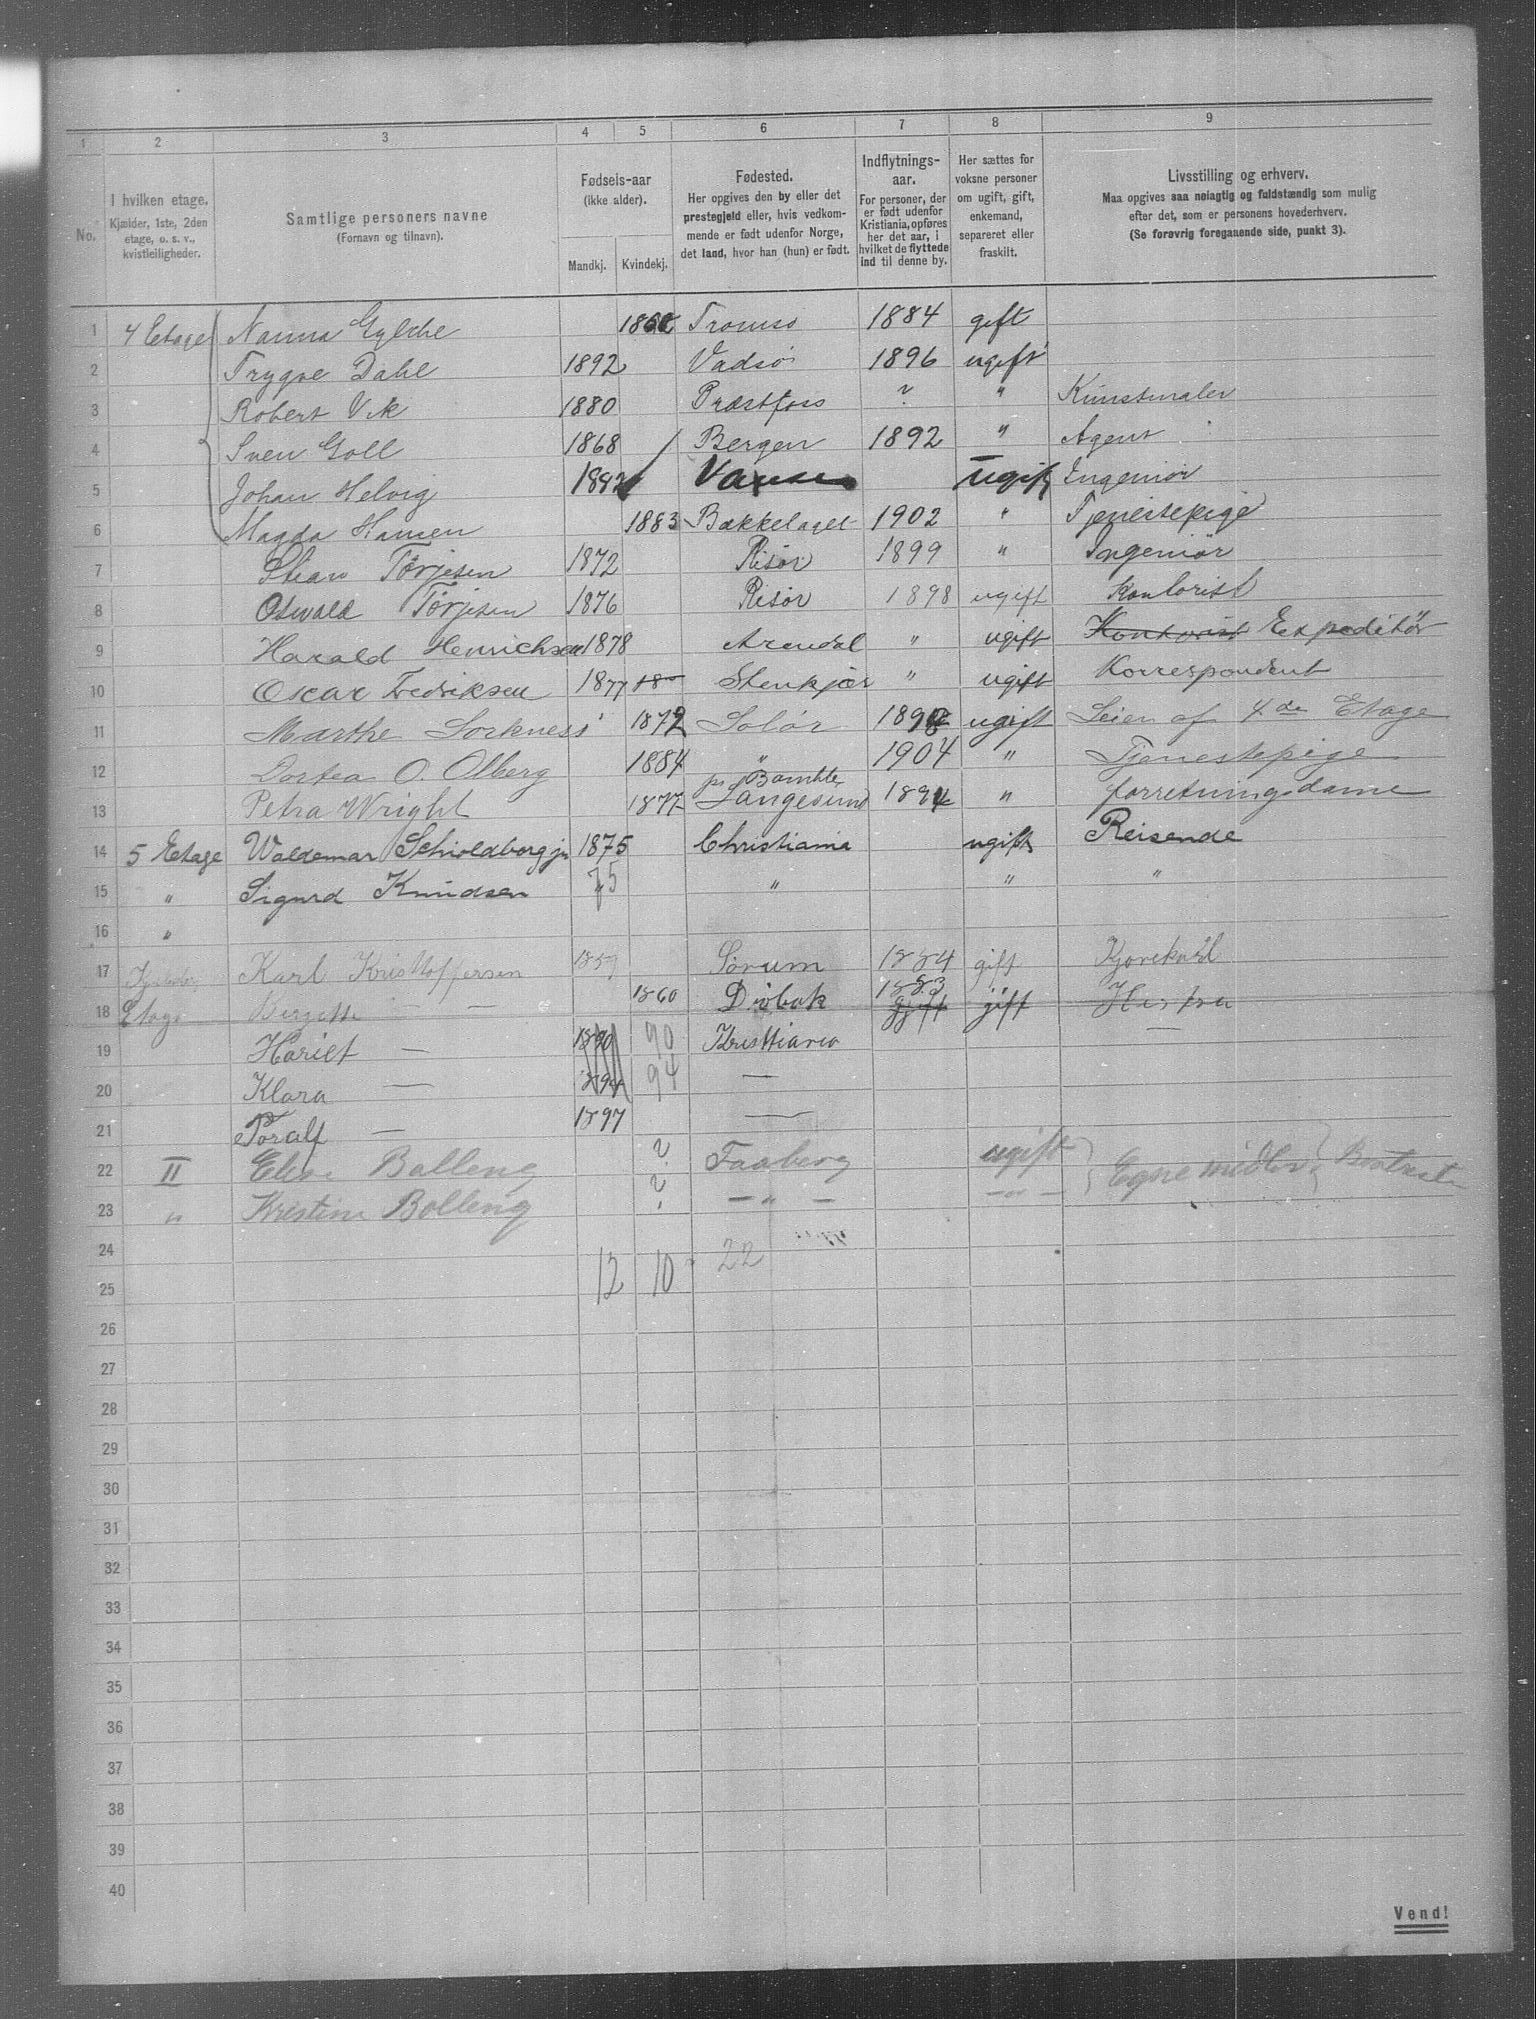 1 2 3 4 5 6 7 8 9
No. I hvilken etage. Kjælder, 1ste, 2den etage, o. s. v., kvistleiligheder. Samtlige personers navne (Fornavn og tilnavn). Fødsels-aar (ikke alder). Mandkj. Kvindekj. Fødested. Her opgives den by eller det prestegjeld eller, hvis vedkommende er født udenfor Norge, det land, hvor han (hun) er født. Indflytnings-aar. For personer, der er født udenfor Kristiania, opføres her det aar, i hvilket de flyttede ind til denne by. Her sættes for voksne personer om ugift, gift, enkemand, separeret eller fraskilt. Livsstilling og erhverv. Maa opgives saa nøiagtig og fuldstændig som mulig efter det, som er personens hovederhverv. (Se forøvrig foregaaende side, punkt 3).
1 4 Etage Nanna Gylche Tromsø 1884 gift
2 Trygve Dahl 1892 Vadsø 1896 ugift
3 Robert Vik 1880 Præstfoss ? " Kunstmaler
4 Sven Goll 1868 Bergen 1892 " Agent
5 Johan Helvig 1882 ugift Ingeniør
6 Magda Hansen 1883 Bækkelaget 1902 " Tjenestepige
7 Tørjesen 1872 Risør 1899 " Ingeniør
8 Oswald Tørjesen 1876 Risør 1898 ugift Kontorist
9 Harald Henrichsen 1878 Arendal " ugift Kontorist Expeditør
10 Oscar Fredriksen 1877 18 Stenkjær " ugift Korrespondent
11 Marthe Sorkness 1872 Solør ugift Leier af 4de Etage
12 Dortea O. Olberg 1884 " 1904 " Tjenestepige
13 Petra Wright 1877 Langesund pr Bamble 1894 " forretningsdame
14 5 Etage Waldemar Schioldborg jr 1875 Christiania ugift Reisende
15 " Sigurd Knudsen 75 " " "
16 "
17 Karl Kristoffersen 1859 Sørum 1884 gift Kjørekarl
18 Etage Birgitte — 1860 Drøbak 1883 gift gift Hustru
19 Hariet — 1890 90 Kristiania —
20 Klara — 1894 94 —
21 Toralf — 1897 —
22 II Elise Balleng ? Faaberg ugift Egne midler
23 " Kristine Bolleng ? — " — — " —
24 22
25 12 10
26
27
28
29
30
31
32
33
34
35
36
37
38
39
40
Vend!